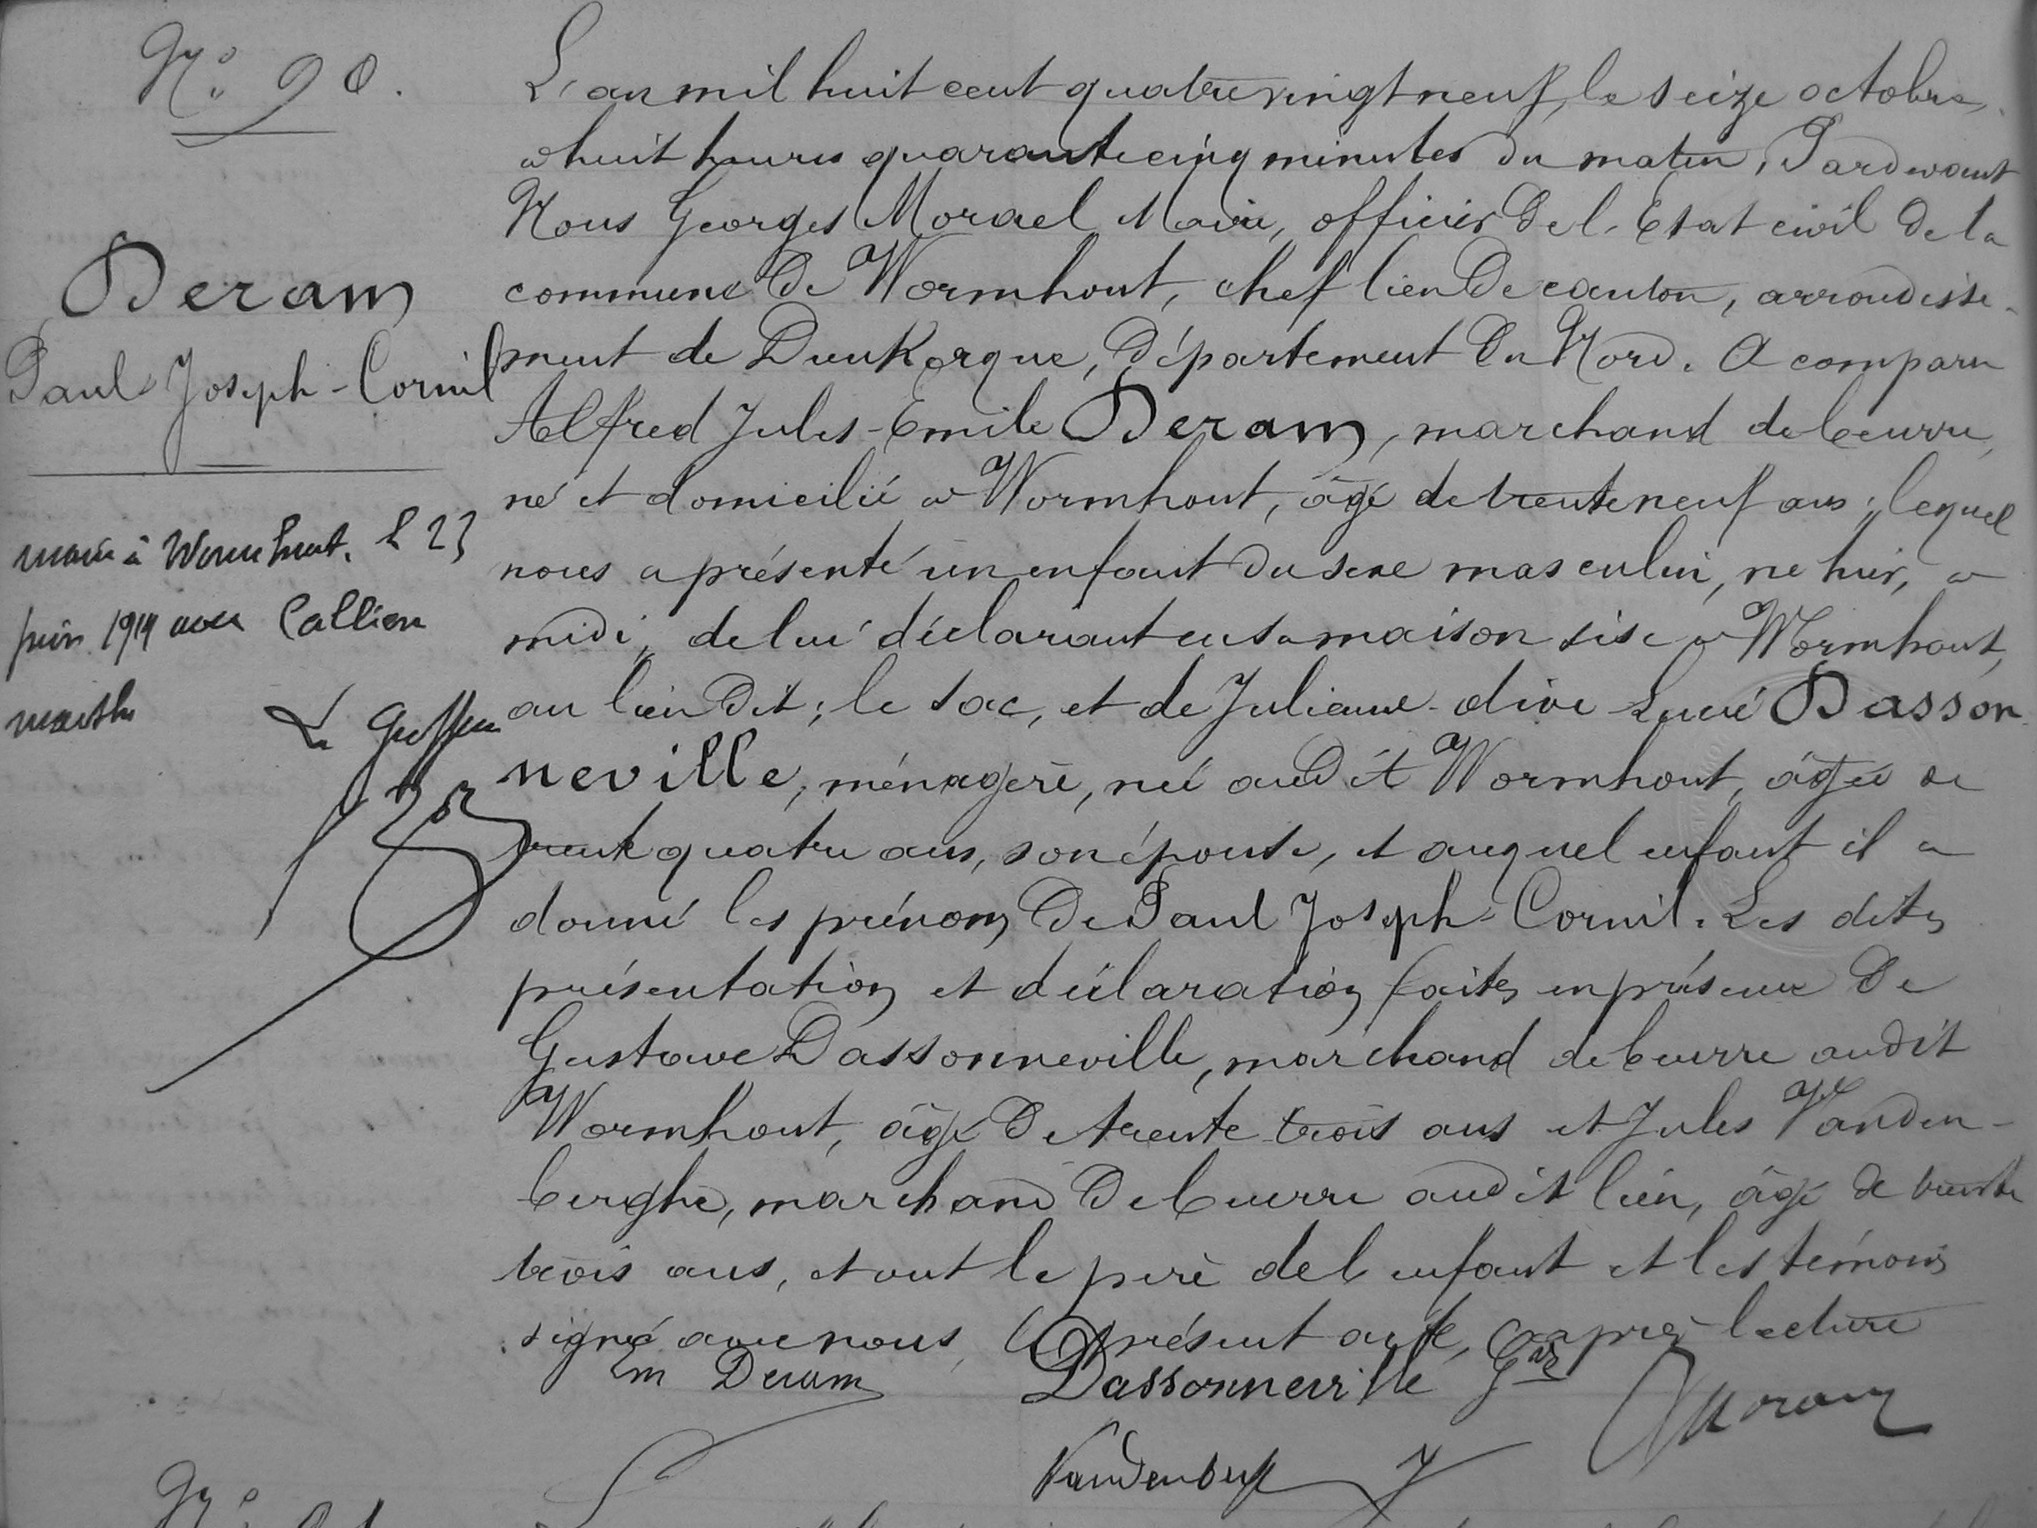 N.º 90.
Deram
Paul Joseph-Cornil
marié à Wormhout. le 23
juin 1914 avec Callien
marthe
Le Greffier
L'an mil huit cent quatre vingt neuf, le seize octobre,
a huit heures quarante cinq minutes du matin, Pardevant
Nous Georges Morael Maire, officier de l'Etat civil de la
commune de Wormhout, chef lieu de canton, arrondisse-
ment de Dunkerque, département du Nord. A comparu
Alfred Jules-Emile Deram, marchand de beurre,
né et domicilié a Wormhout, âgé de trente neuf ans; lequel
nous a présenté un enfant du sexe masculin, né hier, a
midi, de lui déclarant en sa maison sise a Wormhout,
au lieu dit; le Sac, et de Julienne-Lucie Dasson
neville, ménagère, née audit Wormhout, âgée de
trente quatre ans, son épouse, et auquel enfant il a
donné les prénoms de Paul Joseph-Cornil. Les dites
présentation et déclaration faites en présence de
Gustave Dassonneville, marchand de beurre audit
Wormhout, âgé de trente trois ans et Jules Vanden-
berghe, marchand de beurre audit lieu, âgé de trente
trois ans, et ont le père de l'enfant et les témoins
signé avec nous, le présent acte, après lecture
Em Deram Dassonneville Gve Morael
Vandenberghe J
N.º 91